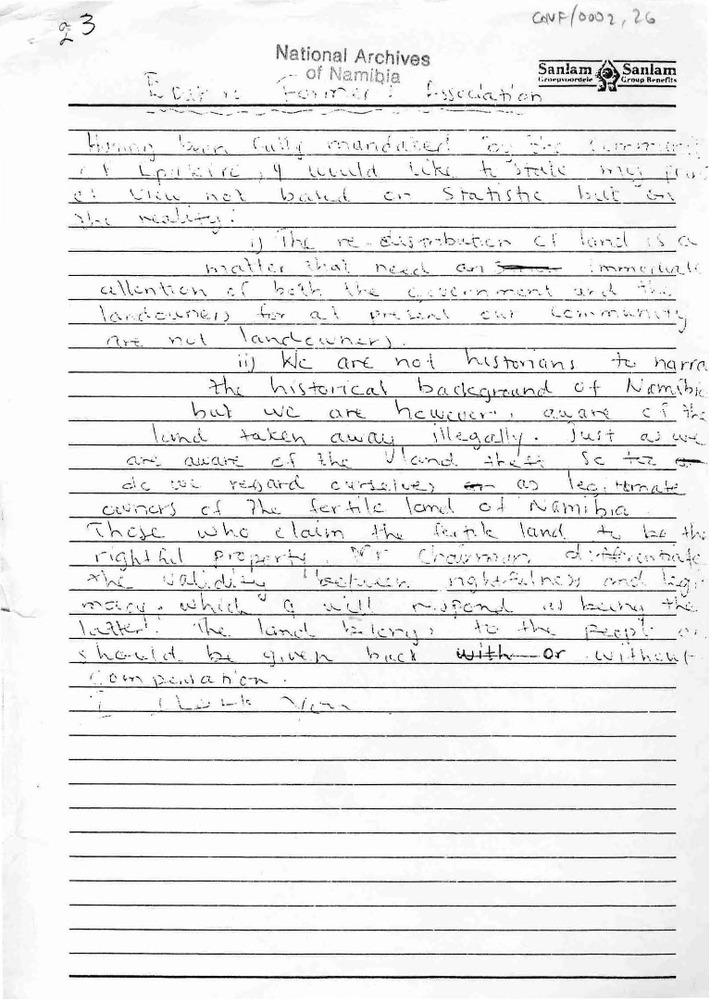 23
CONF/0002, 26
National Archives
of Namibia
Sanlam Sanlam
Groepvoordele Group Benefits
Farmers Association
Having been fully mandated by the communi
of Epukiro, I would like to state my
of view not based on Statistic but on
the reality:
i) The re-distribution of land is a
matter that need an immediate
attention of both the government and the
landowners for at present our community
are not landowners.
ii) We are not historians to narra
the historical background of Namibia
but we are however, aware of the
land taken away illegally. Just as we
are aware of the land theft so too
do we regard ourselves as legitimate
owners of the fertile land of Namibia
Those who claim the fertile land to be the
rightful property, Mr Chairman, differentiate
the validity between rightfulness and legi
macy, which I will respond as being the
latter. The land belongs to the people
should be given back with or without
Compensation.
I Thank You